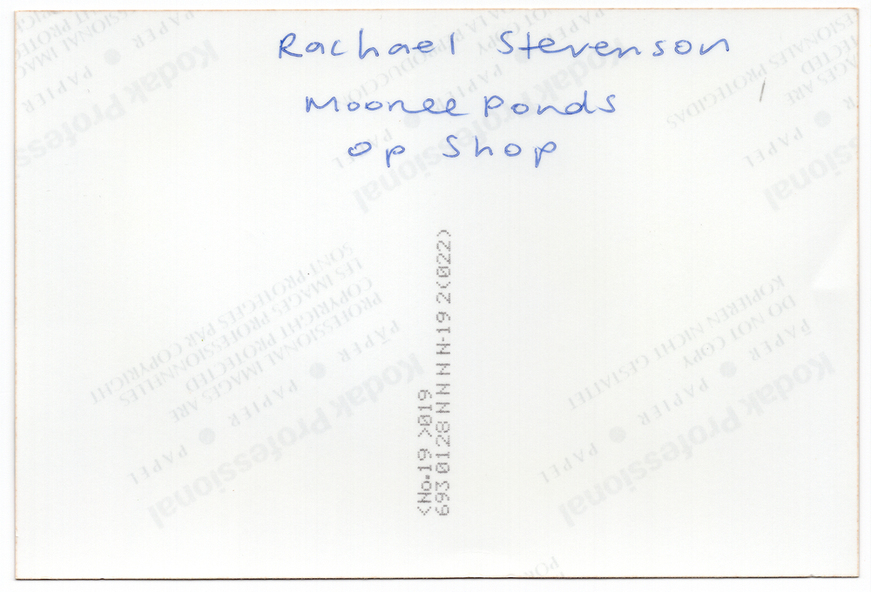 Rachael Stevenson
Moonee Ponds
Op Shop
<No.19 >019
693 0128 N N N N-19 2(022)
Kodak Professional
PAPER ● PAPIER ● PAPEL
PROFESSIONAL IMAGES ARE
COPYRIGHT PROTECTED
LES IMAGES PROFESSIONNELLES
SONT PROTEGEES PAR COPYRIGHT
Kodak Professional
PAPER ● PAPIER ● PAPEL
DO NOT COPY
KOPIEREN NICHT GESTATTET